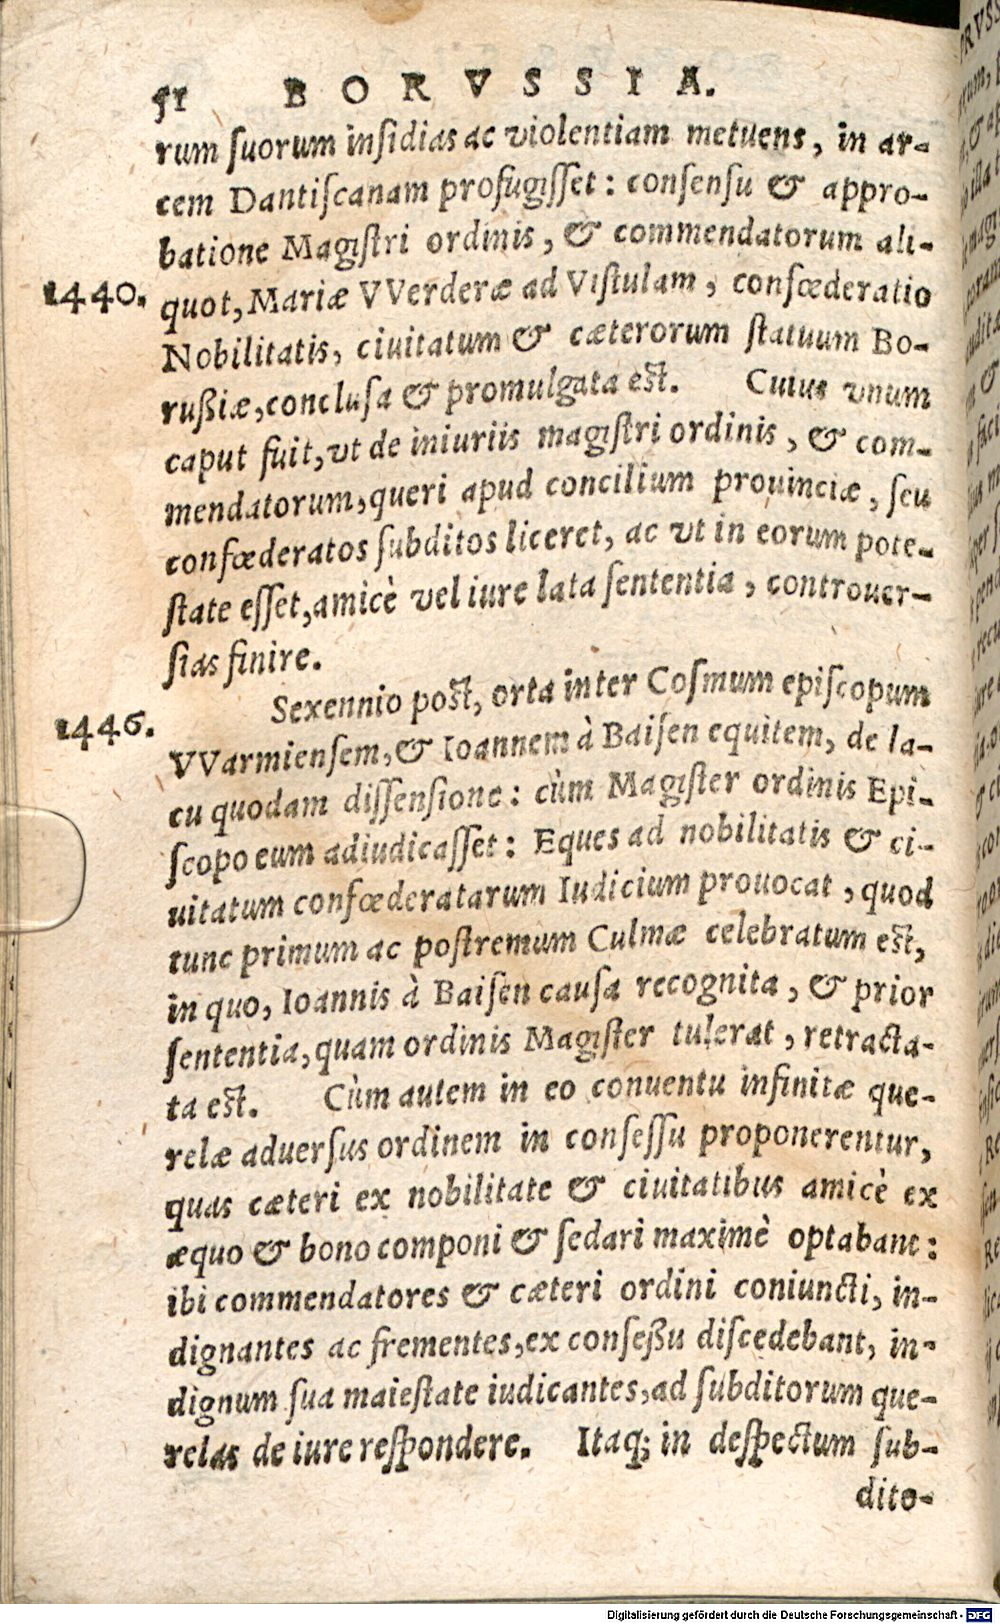 51 BORVSSIA.
rum ſuorum inſidias ac violentiam metuens, in ar-
cem Dantiſcanam profugiſſet: conſenſu & appro-
batione Magiſtri ordinis, & commendatorum ali-
1440. quot, Mariæ VVerderæ ad Viſtulam, confœderatio
Nobilitatis, ciuitatum & cæterorum ſtatuum Bo-
rußiæ, concluſa & promulgata eſt. Cuius vnum
caput fuit, vt de iniuriis magiſtri ordinis, & com-
mendatorum, queri apud concilium prouinciæ, ſeu
confœderatos ſubditos liceret, ac vt in eorum pote-
ſtate eſſet, amicè vel iure lata ſententia, controuer-
ſias finire.
1446. Sexennio poſt, orta inter Coſmum epiſcopum
VVarmienſem, & Ioannem à Baiſen equitem, de la-
cu quodam diſſenſione: cùm Magiſter ordinis Epi-
ſcopo eum adiudicaſſet: Eques ad nobilitatis & ci-
uitatum confœderatarum Iudicium prouocat, quod
tunc primum ac poſtremum Culmæ celebratum eſt,
in quo, Ioannis à Baiſen cauſa recognita, & prior
ſententia, quam ordinis Magiſter tulerat, retracta-
ta eſt. Cùm autem in eo conuentu infinitæ que-
relæ aduerſus ordinem in conſeſſu proponerentur,
quas cæteri ex nobilitate & ciuitatibus amicè ex
æquo & bono componi & ſedari maximè optabant:
ibi commendatores & cæteri ordini coniuncti, in-
dignantes ac frementes, ex conſeßu diſcedebant, in-
dignum ſua maieſtate iudicantes, ad ſubditorum que-
relas de iure reſpondere. Itaq; in deſpectum ſub-
dito-
Digitalisierung gefördert durch die Deutsche Forschungsgemeinschaft - DFG